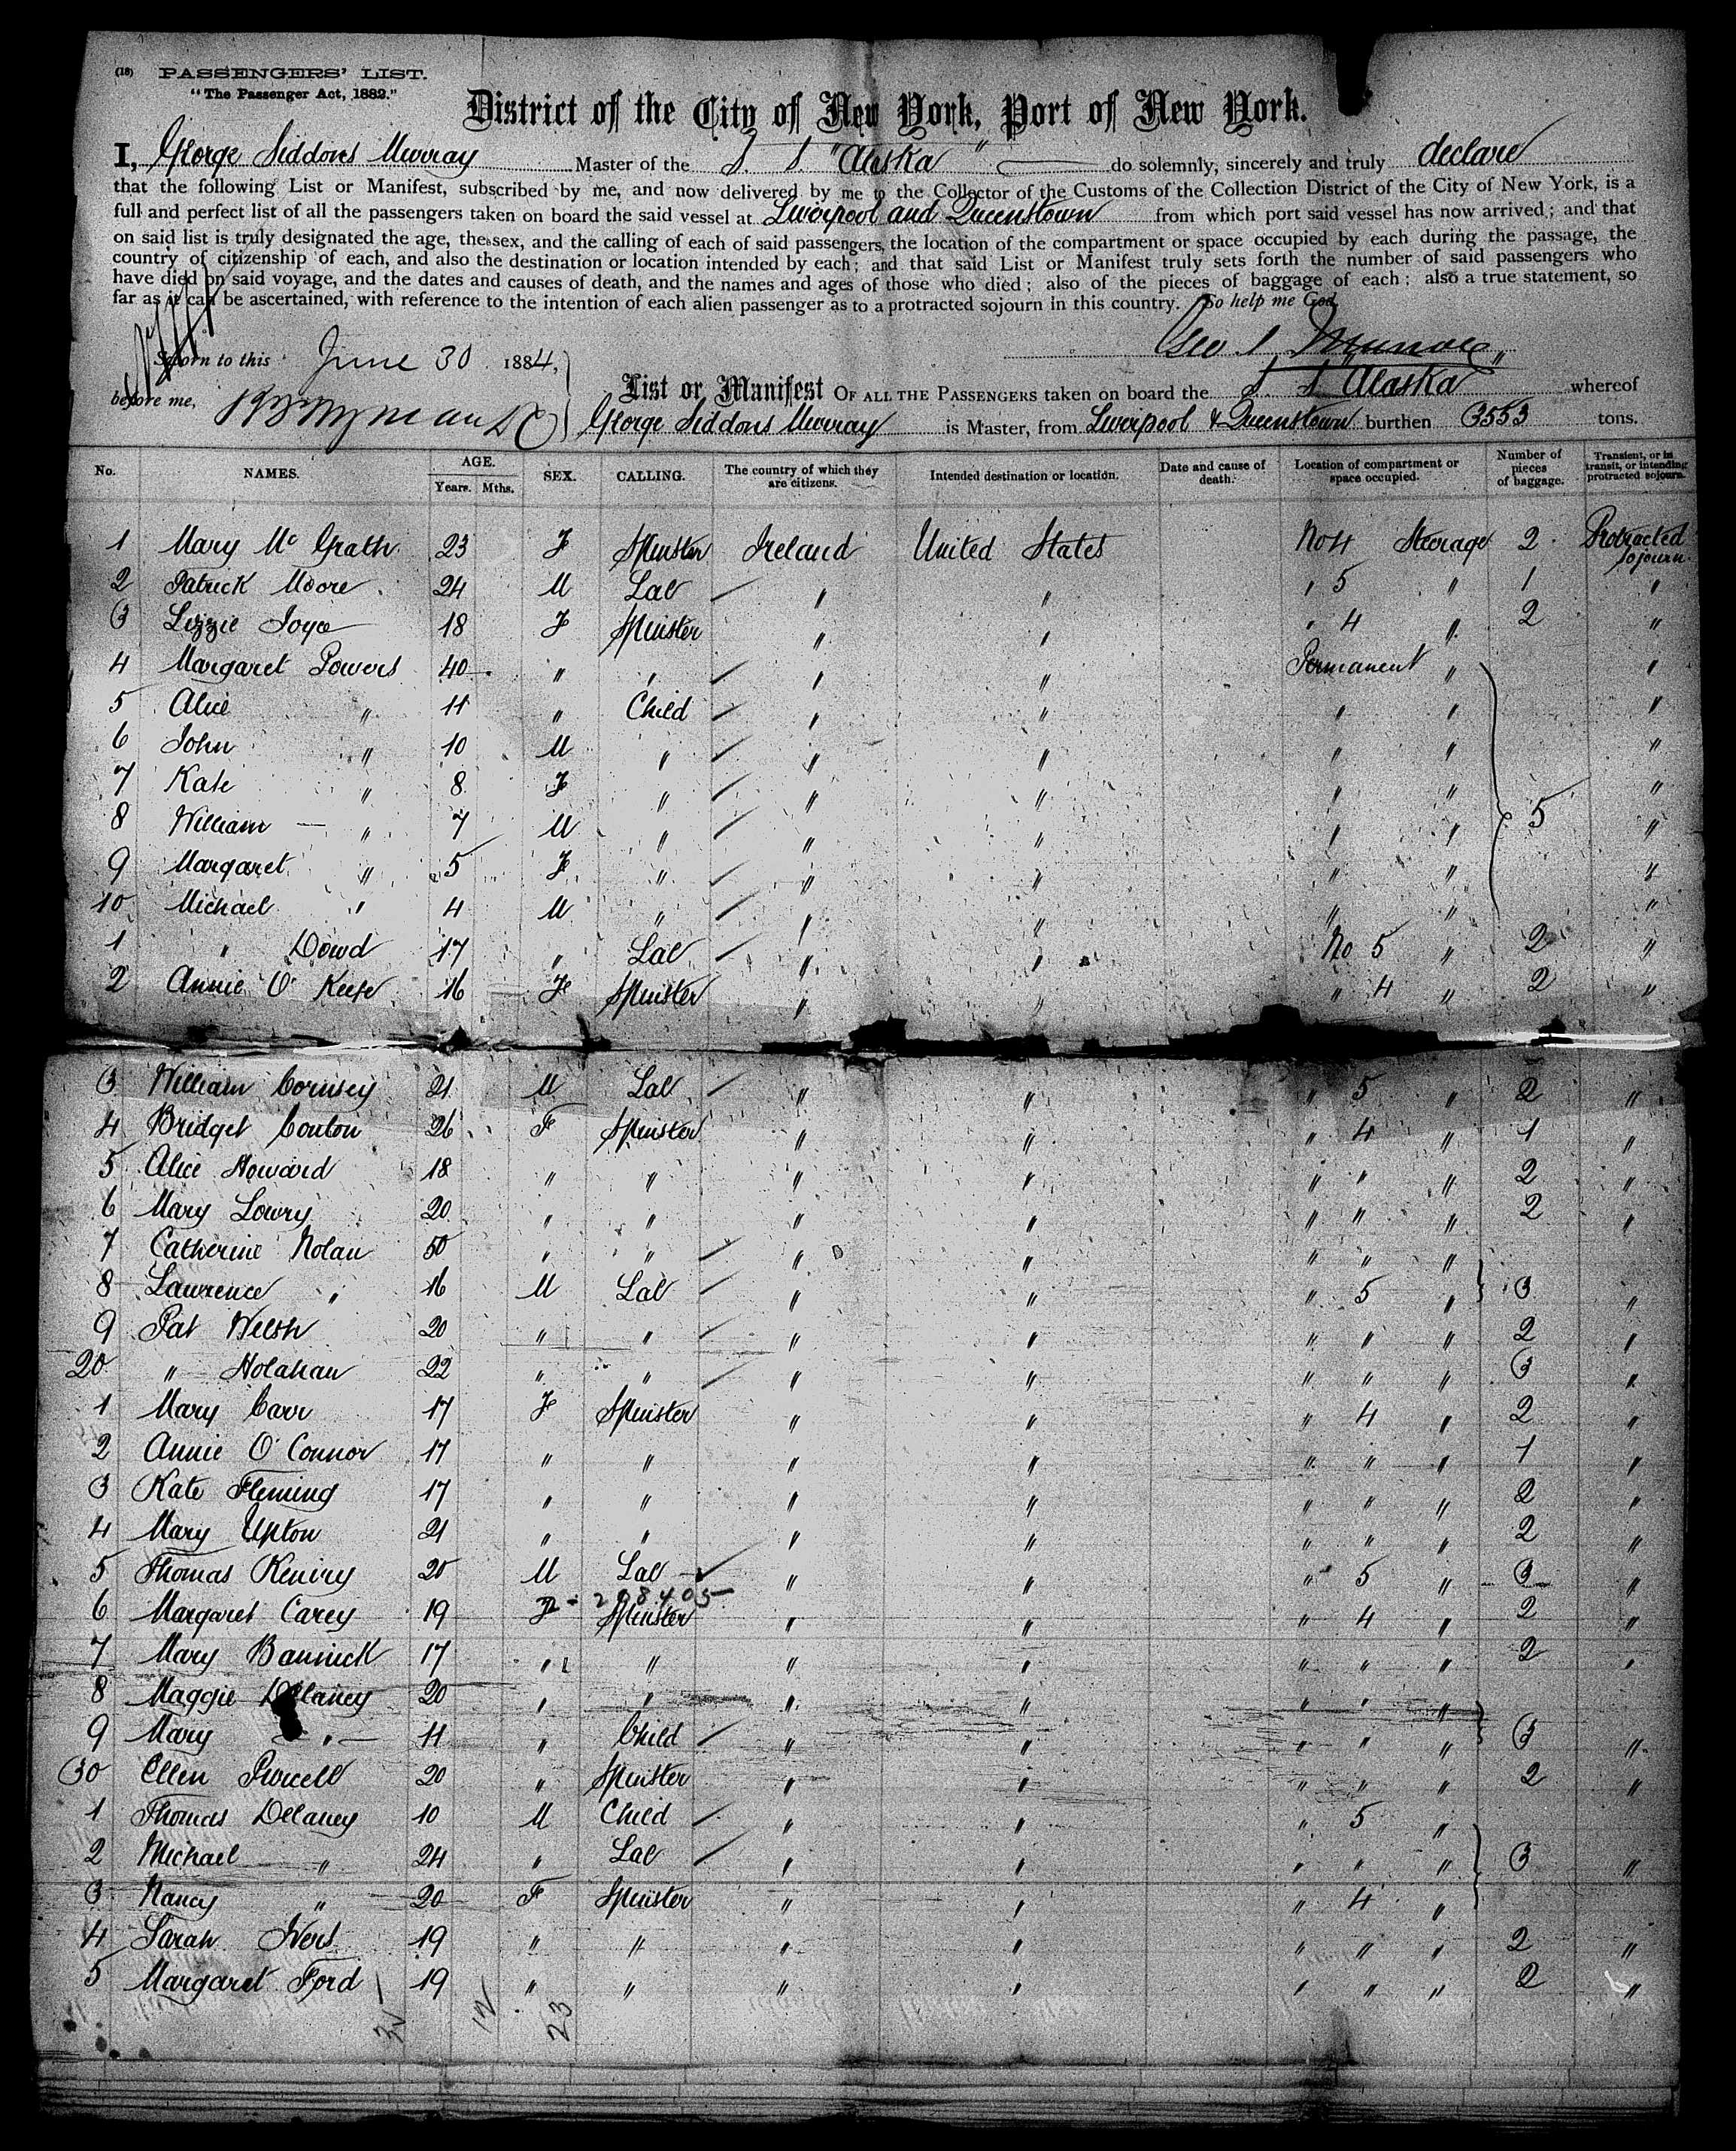 (18) PASSENGERS' LIST.
"The Passenger Act, 1882."
District of the City of New York, Port of New York.
I, George Siddons Murray Master of the S. S. "Alaska" do solemnly, sincerely and truly declare
that the following List or Manifest, subscribed by me, and now delivered by me to the Collector of the Customs of the Collection District of the City of New York, is a
full and perfect list of all the passengers taken on board the said vessel at Liverpool and Queenstown from which port said vessel has now arrived; and that
on said list is truly designated the age, the sex, and the calling of each of said passengers, the location of the compartment or space occupied by each during the passage, the
country of citizenship of each, and also the destination or location intended by each; and that said List or Manifest truly sets forth the number of said passengers who
have died on said voyage, and the dates and causes of death, and the names and ages of those who died; also of the pieces of baggage of each: also a true statement, so
far as it can be ascertained, with reference to the intention of each alien passenger as to a protracted sojourn in this country. So help me God
Geo S Murray
Sworn to this June 30 1884,
before me,
List or Manifest OF ALL THE PASSENGERS taken on board the S S "Alaska" whereof
George Siddons Murray is Master, from Liverpool & Queenstown burthen 3553 tons.
No. NAMES. AGE. Years. Mths. SEX. CALLING. The country of which they are citizens. Intended destination or location. Date and cause of death. Location of compartment or space occupied. Number of pieces of baggage. Transient, or in transit, or intending protracted sojourn.
1 Mary Mc Grath 23 F Spinster Ireland United States No 4 Steerage 2 Protracted sojourn
2 Patrick Moore 24 M Lab " " " 5 " 1 "
3 Lizzie Joyce 18 F Spinster " " " 4 " 2 "
4 Margaret Powers 40 " " " " Permanent " "
5 Alice " 11 " Child " " " " "
6 John " 10 M " " " " " "
7 Kate " 8 F " " " " " "
8 William " 7 M " " " " " 5 "
9 Margaret " 5 F " " " " " "
10 Michael " 4 M " " " " " "
1 " Dowd 17 " Lab " " No 5 " 2 "
2 Annie O' Keefe 16 F Spinster " " " 4 " 2 "
3 William Cornsey 21 M Lab " " " 5 " 2 "
4 Bridget Conlon 26 F Spinster " " " 4 " 1 "
5 Alice Howard 18 " " " " " " " 2 "
6 Mary Lowry 20 " " " " " " " 2 "
7 Catherine Nolan 50 " " " " " " "
8 Lawrence " 16 M Lab " " " 5 " 3 "
9 Pat Welsh 20 " " " " " " " 2 "
20 " Holahan 22 " " " " " " " 3 "
1 Mary Carr 17 F Spinster " " " 4 " 2 "
2 Annie O' Connor 17 " " " " " " " 1 "
3 Kate Fleming 17 " " " " " " " 2 "
4 Mary Upton 21 " " " " " " " 2 "
5 Thomas Keniry 20 M Lab " " " 5 " 3 "
208405
6 Margaret Carey 19 F Spinster " " " 4 " 2 "
7 Mary Bannick 17 " " " " " " " 2 "
8 Maggie Delaney 20 " " " " " " "
9 Mary " 11 " Child " " " " " 3 "
30 Ellen Purcell 20 " Spinster " " " " " 2 "
1 Thomas Delaney 10 M Child " " " 5 "
2 Michael " 24 " Lab " " " " " 3 "
3 Nancy " 20 F Spinster " " " 4 "
4 Sarah Ivers 19 " " " " " " " 2 "
5 Margaret Ford 19 " " " " " " " 2 "
12 23